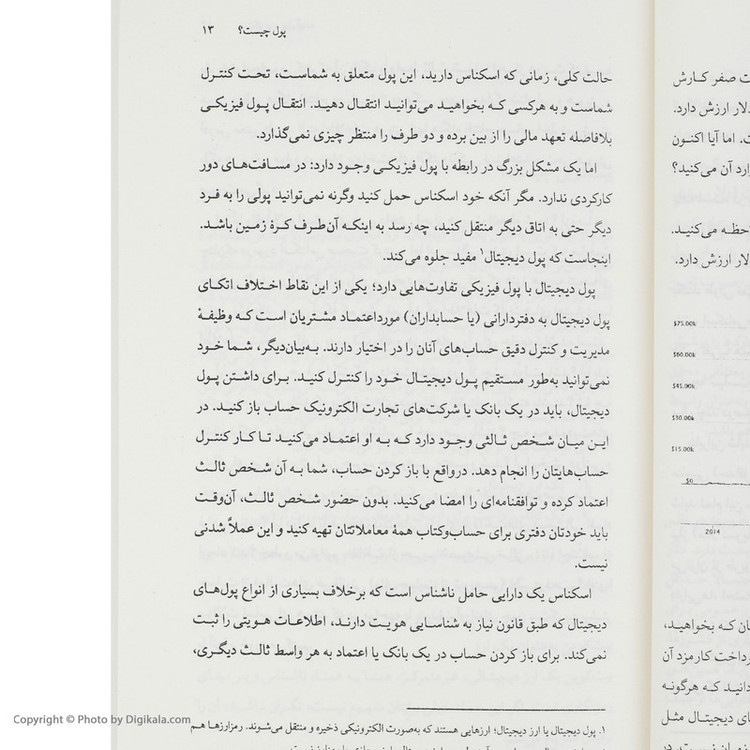 پول چیست؟ ۱۳
حالت کلی، زمانی که اسکناس دارید، این پول متعلق به شماست، تحت کنترل
شماست و به هرکسی که بخواهید می‌توانید انتقال دهید. انتقال پول فیزیکی
بلافاصله تعهد مالی را از بین برده و دو طرف را منتظر چیزی نمی‌گذارد.
اما یک مشکل بزرگ در رابطه با پول فیزیکی وجود دارد: در مسافت‌های دور
کارکردی ندارد. مگر آنکه خود اسکناس حمل کنید وگرنه نمی‌توانید پولی را به فرد
دیگر حتی به اتاق دیگر منتقل کنید، چه رسد به اینکه آن‌طرف کرهٔ زمین باشد.
اینجاست که پول دیجیتال۱ مفید جلوه می‌کند.
پول دیجیتال با پول فیزیکی تفاوت‌هایی دارد؛ یکی از این نقاط اختلاف اتکای
پول دیجیتال به دفتردارانی (یا حسابداران) مورداعتماد مشتریان است که وظیفهٔ
مدیریت و کنترل دقیق حساب‌های آنان را در اختیار دارند. به‌بیان‌دیگر، شما خود
نمی‌توانید به‌طور مستقیم پول دیجیتال خود را کنترل کنید. برای داشتن پول
دیجیتال، باید در یک بانک یا شرکت‌های تجارت الکترونیک حساب باز کنید. در
این میان شخص ثالثی وجود دارد که به او اعتماد می‌کنید تا کار کنترل
حساب‌هایتان را انجام دهد. درواقع با باز کردن حساب، شما به آن شخص ثالث
اعتماد کرده و توافقنامه‌ای را امضا می‌کنید. بدون حضور شخص ثالث، آن‌وقت
باید خودتان دفتری برای حساب‌وکتاب همهٔ معاملاتتان تهیه کنید و این عملاً شدنی
نیست.
اسکناس یک دارایی حامل ناشناس است که برخلاف بسیاری از انواع پول‌های
دیجیتال که طبق قانون نیاز به شناسایی هویت دارند، اطلاعات هویتی را ثبت
نمی‌کند. برای باز کردن حساب در یک بانک یا اعتماد به هر واسط ثالث دیگری،
۱. پول دیجیتال یا ارز دیجیتال؛ ارزهایی هستند که به‌صورت الکترونیکی ذخیره و منتقل می‌شوند. رمزارزها هم
ت صفر کارش
لار ارزش دارد.
ت. اما آیا اکنون
ارد آن می‌کنید؟
احظه می‌کنید.
لار ارزش دارد.
$75.00k
$60.00k
$45.00k
$30.00k
$15.00k
$0
2014
ان که بخواهید،
رداخت کارمزد آن
دانید که هرگونه
ای دیجیتال مثل
Copyright © Photo by Digikala.com